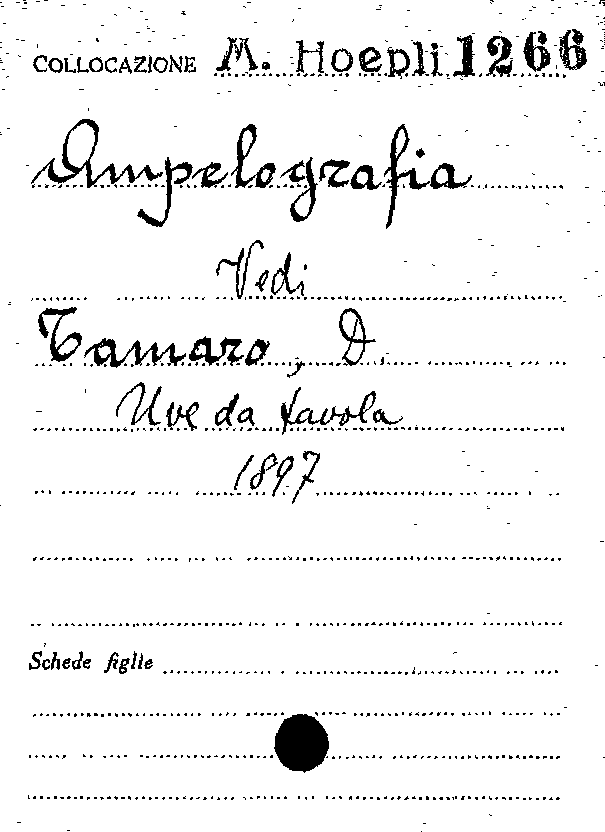 COLLOCAZIONE M. Hoepli 1266
Ampelografia
Vedi
Tamaro, D.
Uve da tavola
1897
Schede figlie